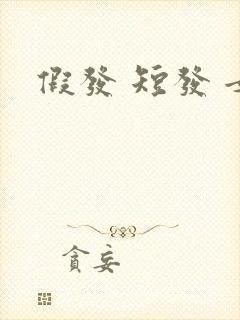 假發 短發
貪妄